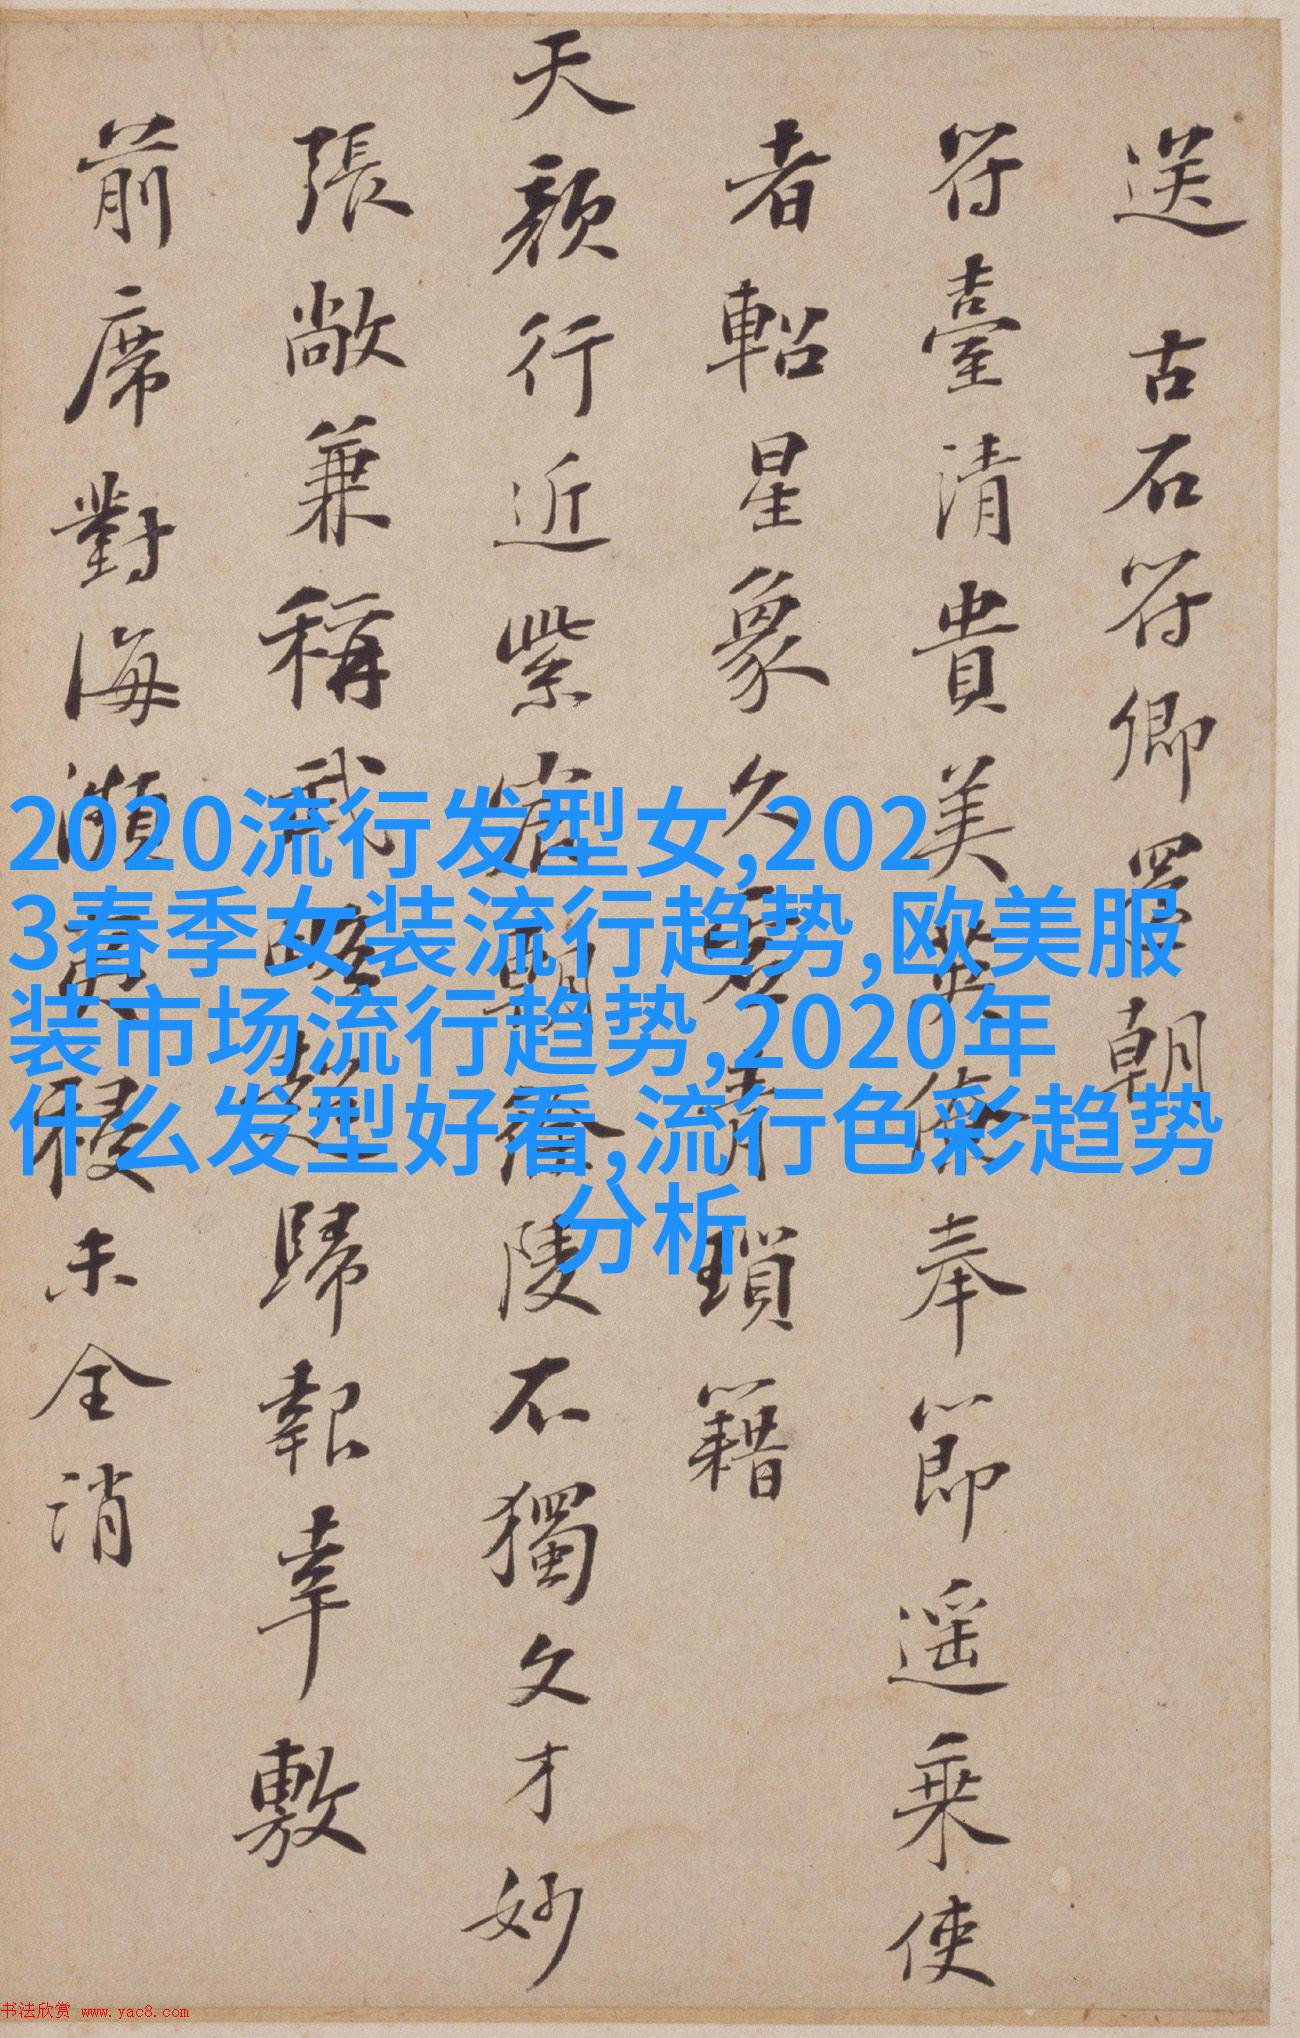 送 古石符卿罢朝
符臺清貴美英僚奉節遥乗使
者軺星象久
青瑣籍
天顔行近紫宸朝
陵不獨文才妙
張敞兼稱武略
歸報幸敷
前席對海瀕
祲未全消
2020流行发型女,202
3春季女装流行趋势,欧美服
装市场流行趋势,2020年
什么发型好看,流行色彩趋势
分析
书法欣赏 www.yac8.com